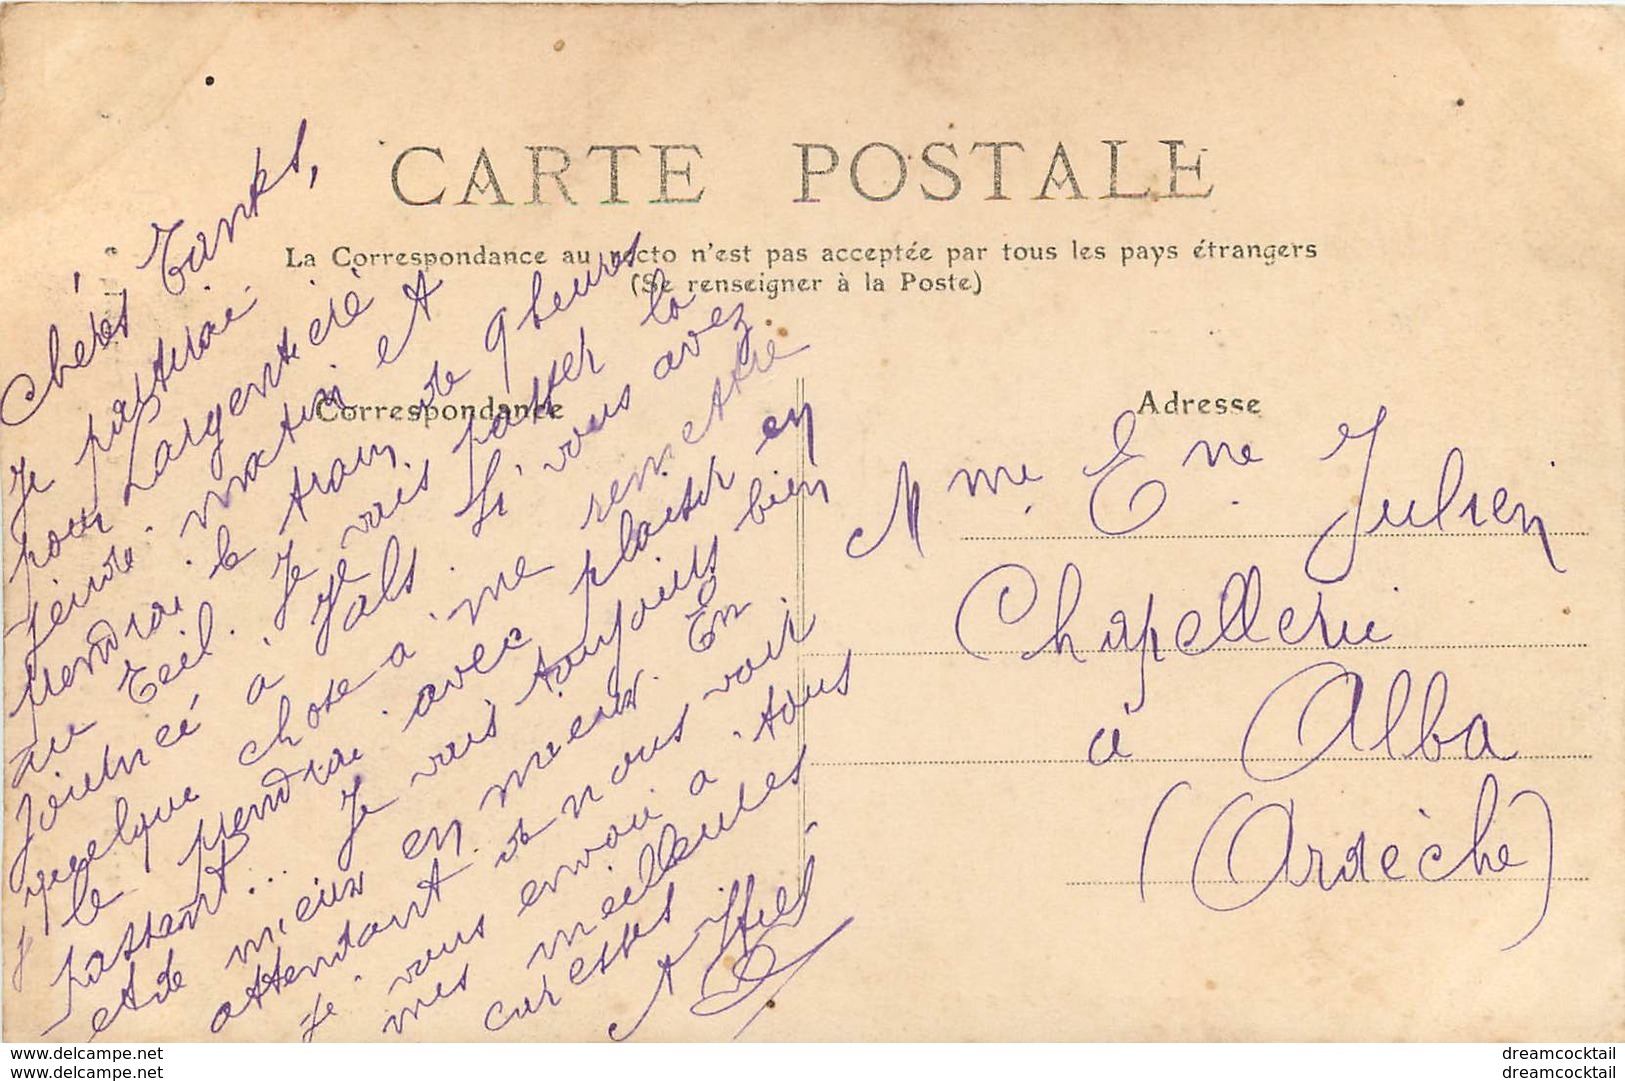 CARTE POSTALE
La Correspondance au recto n'est pas acceptée par tous les pays étrangers
(Se renseigner à la Poste)
Correspondance
Adresse
Chères Tantes,
Je partirai
pour Largentière
matin et
prendrai le train de 9 heures
au Teil. Je vais passer la
journée à Vals. Si vous avez
quelque chose à me remettre
je le prendrai avec plaisir en
passant... Je vais toujours bien
et de mieux en mieux. En
attendant de vous voir
je vous envoi à tous
mes meilleures
caresses
Mme Ene Julien
Chapellerie
à Alba
(Ardèche)
www.delcampe.net
www.delcampe.net
dreamcocktail
dreamcocktail